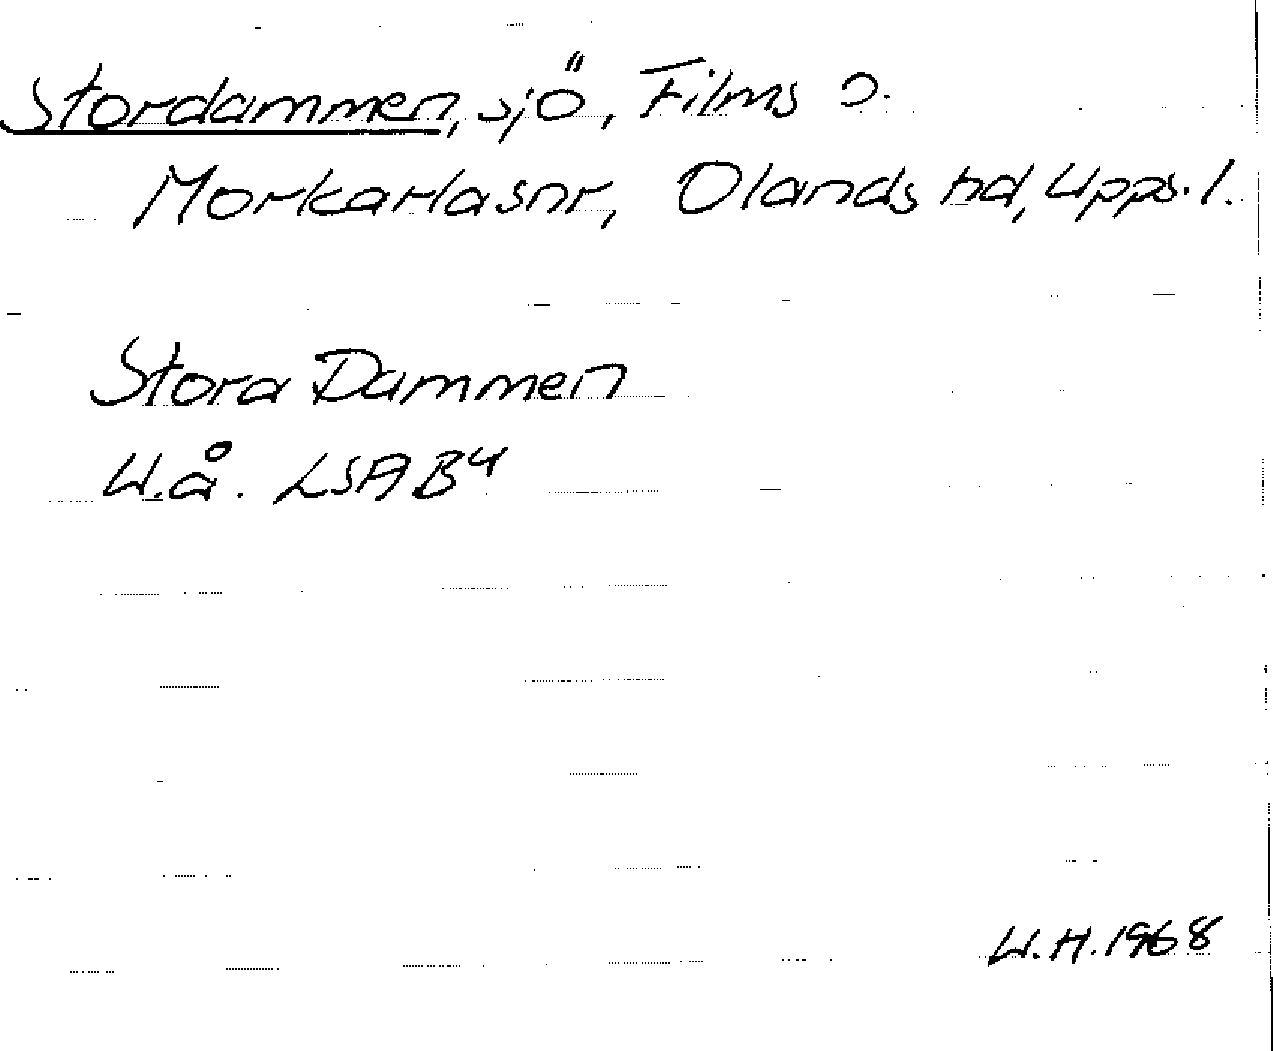 Stordammen, sjö, Films s.
Morkarlasnr, Olands hd, Upps. l.
Stora Dammen
U.å. LSA B4
U.H. 1968